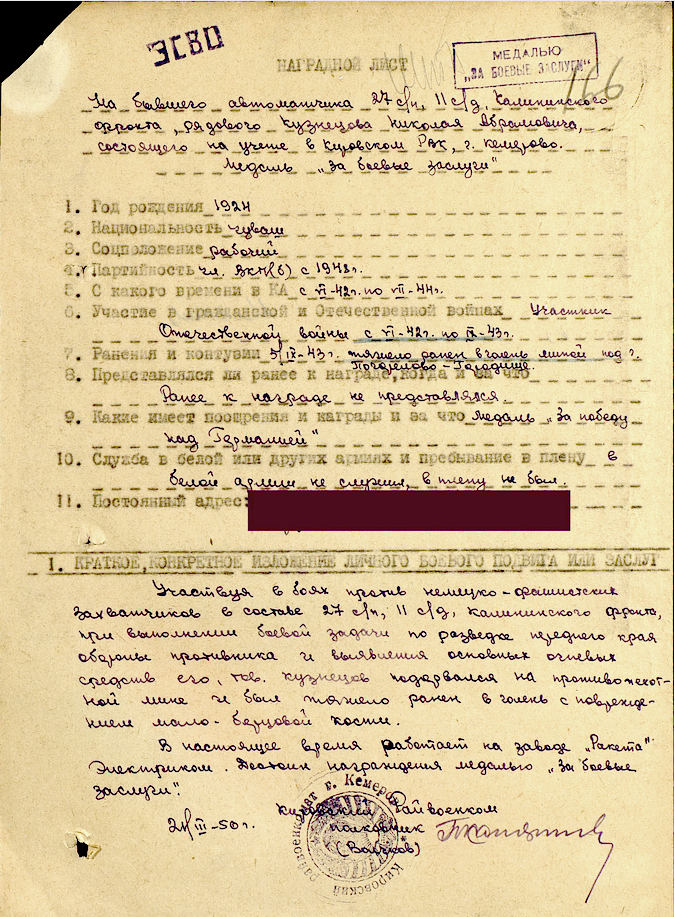 ЭСВО
НАГРАДНОЙ ЛИСТ
МЕДАЛЬЮ
„ЗА БОЕВЫЕ ЗАСЛУГИ"
166
На бывшего автоматчика 27 с/п, 11 с/д, Калининского
фронта, рядового Кузнецова Николая Абрамовича,
состоящего на учете в Кировском РВК, г. Кемерово.
Медаль „За боевые заслуги"
1. Год рождения 1924
2. Национальность чуваш
3. Соцположение рабочий
4. Партийность чл. ВКП(б) с 1948г.
5. С какого времени в КА с VI-42г. по VII-44г.
6. Участие в гражданской и Отечественной войнах Участник
Отечественной войны с VI-42г. по IX-43г.
7. Ранения и контузии 5/IX-43г. тяжело ранен в голень миной под г.
8. Представлялся ли ранее к награде, когда и за что Городище.
Ранее к награде не представлялся.
9. Какие имеет поощрения и награды и за что медаль „За победу
над Германией"
10. Служба в белой или других армиях и пребывание в плену в
белой армии не служил, в плену не был.
11. Постоянный адрес:
I. КРАТКОЕ, КОНКРЕТНОЕ ИЗЛОЖЕНИЕ ЛИЧНОГО БОЕВОГО ПОДВИГА ИЛИ ЗАСЛУГ
Участвуя в боях против немецко-фашистских
захватчиков в составе 27 с/п, 11 с/д, Калининского фронта,
при выполнении боевой задачи по разведке переднего края
обороны противника и выявления основных огневых
средств его, тов. Кузнецов подорвался на противопехот-
ной мине и был тяжело ранен в голень с поврежде-
нием мало-берцовой кости.
В настоящее время работает на заводе „Ракета"
Электриком. Достоин награждения медалью „За боевые
заслуги".
Кировский Райвоенком
21/III-50г. полковник
(Волчков)
Кировский райвоенкомат г. Кемерово